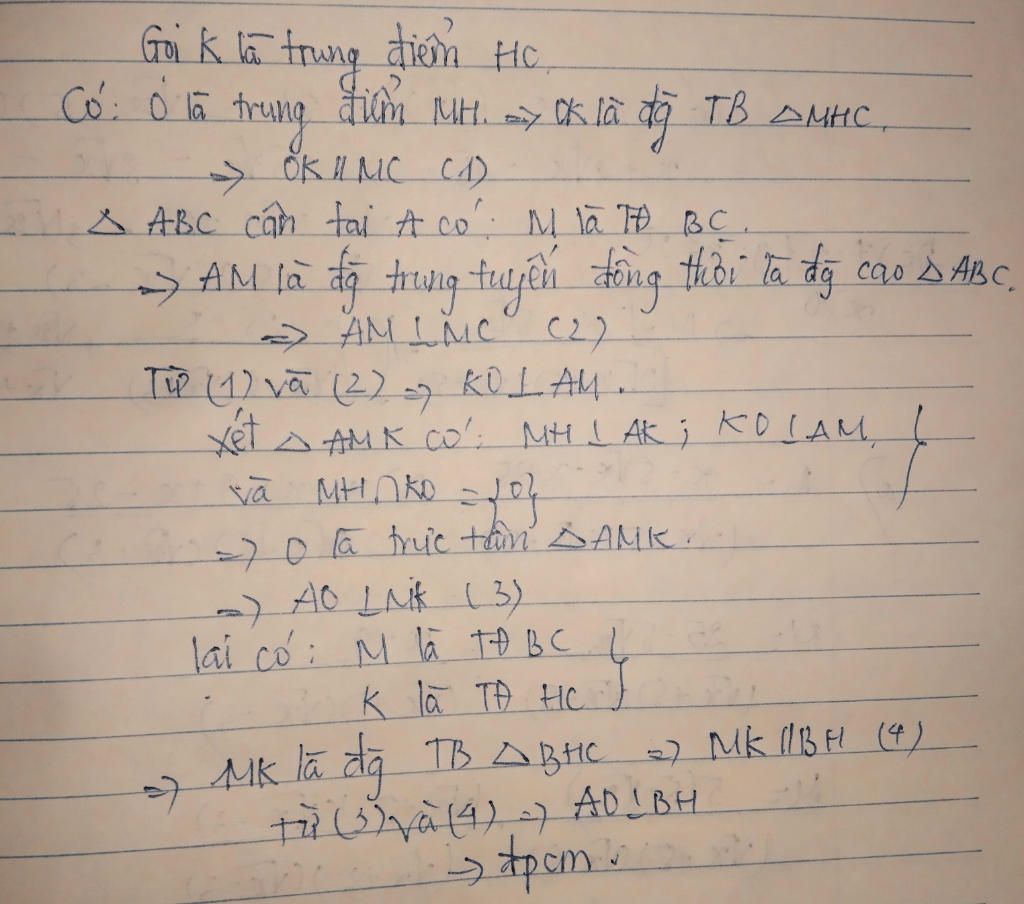 Gọi K là trung điểm HC.
Có: O là trung điểm MH. => OK là đg TB △MHC.
=> OK // MC (1)
△ ABC cân tại A có: M là TĐ BC.
=> AM là đg trung tuyến đồng thời là đg cao △ABC.
=> AM ⊥ MC (2)
Từ (1) và (2) => KO ⊥ AM.
Xét △ AMK có: MH ⊥ AK ; KO ⊥ AM, }
và MH ∩ KO = {O}
=> O là trực tâm △AMK.
=> AO ⊥ MK (3)
lại có: M là TĐ BC }
K là TĐ HC
=> MK là đg TB △BHC => MK // BH (4)
từ (3) và (4) => AO ⊥ BH
-> đpcm.